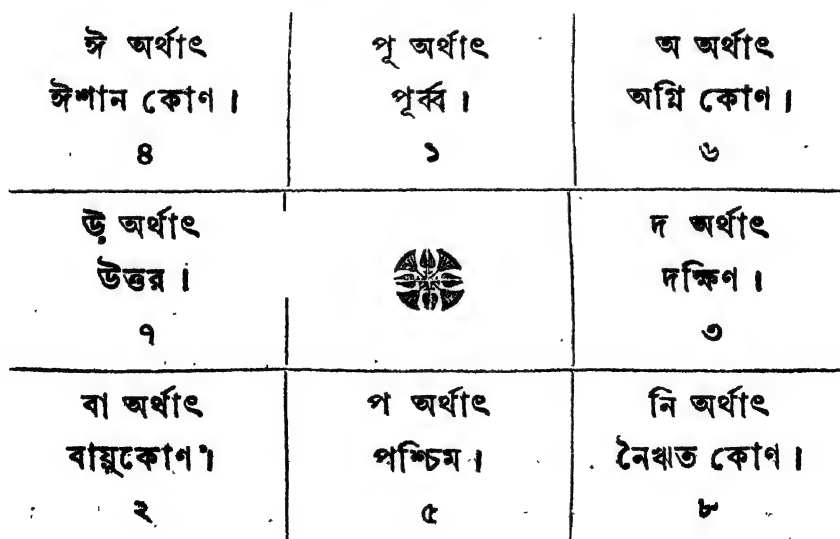 ঈ অর্থাৎ
ঈশান কোণ।
৪
পূ অর্থাৎ
পূর্ব্ব।
১
অ অর্থাৎ
অগ্নি কোণ।
৬
উ অর্থাৎ
উত্তর।
৭
দ অর্থাৎ
দক্ষিণ।
৩
বা অর্থাৎ
বায়ুকোণ।
২
প অর্থাৎ
পশ্চিম।
৫
নি অর্থাৎ
নৈঋত কোণ।
৮